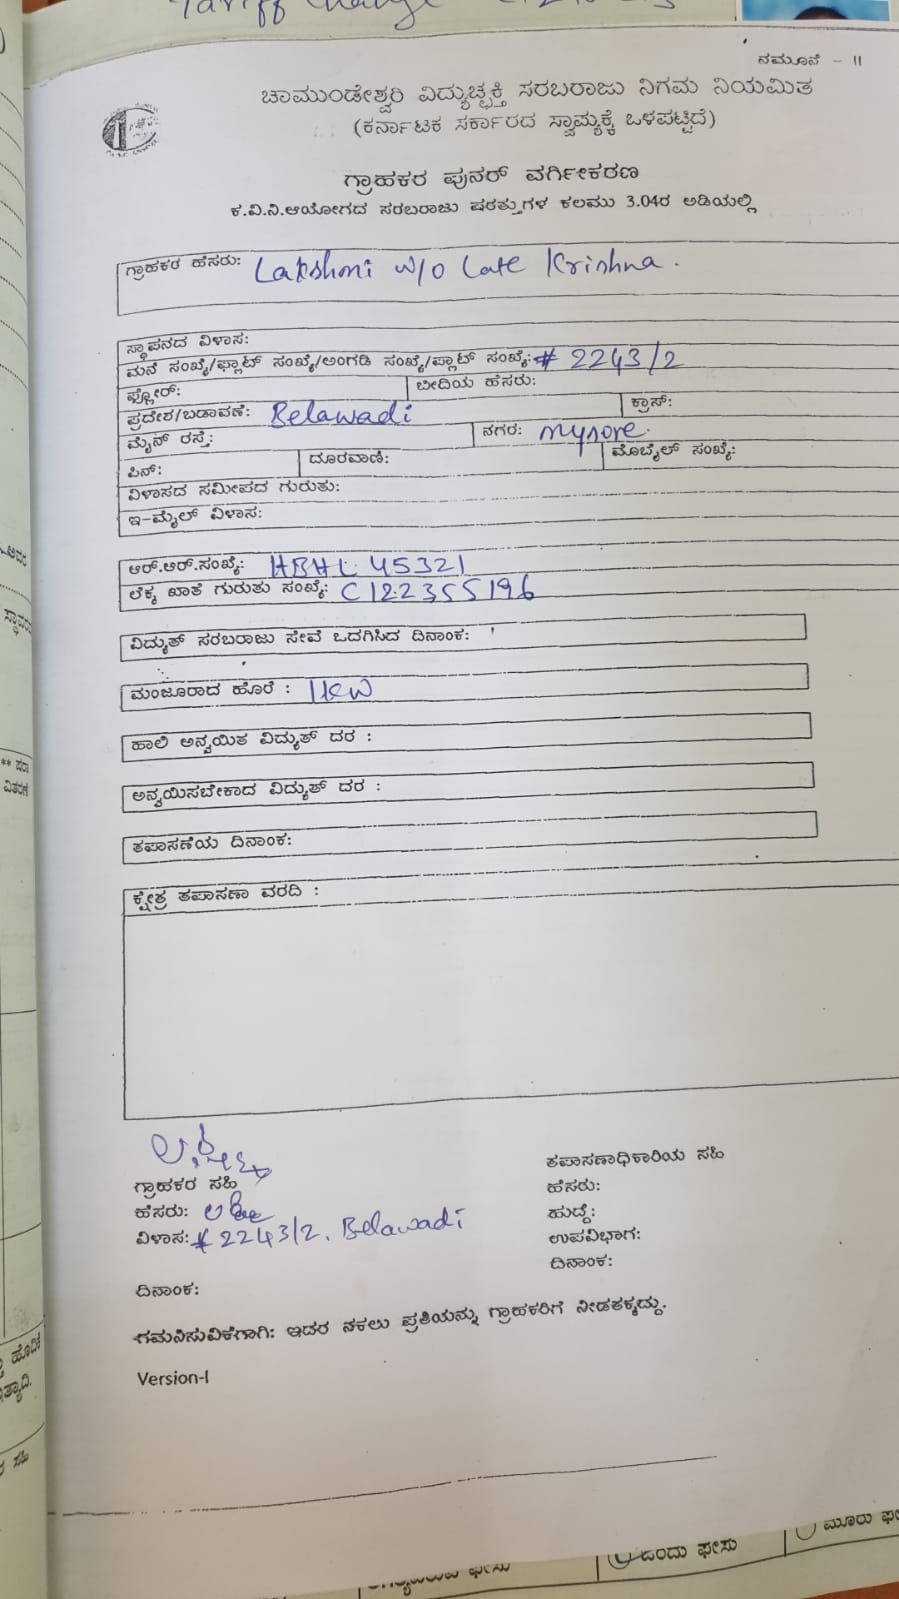 Tariff Change
ನಮೂನೆ - II
ಚಾಮುಂಡೇಶ್ವರಿ ವಿದ್ಯುಚ್ಛಕ್ತಿ ಸರಬರಾಜು ನಿಗಮ ನಿಯಮಿತ
(ಕರ್ನಾಟಕ ಸರ್ಕಾರದ ಸ್ವಾಮ್ಯಕ್ಕೆ ಒಳಪಟ್ಟಿದೆ)
ಗ್ರಾಹಕರ ಪುನರ್ ವರ್ಗೀಕರಣ
ಕ.ವಿ.ನಿ.ಆಯೋಗದ ಸರಬರಾಜು ಷರತ್ತುಗಳ ಕಲಮು 3.04ರ ಅಡಿಯಲ್ಲಿ
ಗ್ರಾಹಕರ ಹೆಸರು: Lakshmi W/o Late Krishna.
ಸ್ಥಾಪನದ ವಿಳಾಸ:
ಮನೆ ಸಂಖ್ಯೆ/ಫ್ಲಾಟ್ ಸಂಖ್ಯೆ/ಅಂಗಡಿ ಸಂಖ್ಯೆ/ಪ್ಲಾಟ್ ಸಂಖ್ಯೆ: # 2243/2
ಫ್ಲೋರ್: ಬೀದಿಯ ಹೆಸರು:
ಪ್ರದೇಶ/ಬಡಾವಣೆ: Belawadi ಕ್ರಾಸ್:
ಮೈನ್ ರಸ್ತೆ: ನಗರ: Mysore.
ಪಿನ್: ದೂರವಾಣಿ: ಮೊಬೈಲ್ ಸಂಖ್ಯೆ:
ವಿಳಾಸದ ಸಮೀಪದ ಗುರುತು:
ಇ-ಮೈಲ್ ವಿಳಾಸ:
ಆರ್.ಆರ್.ಸಂಖ್ಯೆ: HBHL 45321
ಲೆಕ್ಕ ಖಾತೆ ಗುರುತು ಸಂಖ್ಯೆ: C122355196
ವಿದ್ಯುತ್ ಸರಬರಾಜು ಸೇವೆ ಒದಗಿಸಿದ ದಿನಾಂಕ:
ಮಂಜೂರಾದ ಹೊರೆ : 1KW
ಹಾಲಿ ಅನ್ವಯಿತ ವಿದ್ಯುತ್ ದರ :
ಅನ್ವಯಿಸಬೇಕಾದ ವಿದ್ಯುತ್ ದರ :
ತಪಾಸಣೆಯ ದಿನಾಂಕ:
ಕ್ಷೇತ್ರ ತಪಾಸಣಾ ವರದಿ :
ಗ್ರಾಹಕರ ಸಹಿ
ಹೆಸರು:
ವಿಳಾಸ: # 2243/2, Belawadi
ದಿನಾಂಕ:
ತಪಾಸಣಾಧಿಕಾರಿಯ ಸಹಿ
ಹೆಸರು:
ಹುದ್ದೆ:
ಉಪವಿಭಾಗ:
ದಿನಾಂಕ:
ಗಮನಿಸುವಿಕೆಗಾಗಿ: ಇದರ ನಕಲು ಪ್ರತಿಯನ್ನು ಗ್ರಾಹಕರಿಗೆ ನೀಡತಕ್ಕದ್ದು.
Version-I
ಒಂದು ಫೇಸು
ಮೂರು